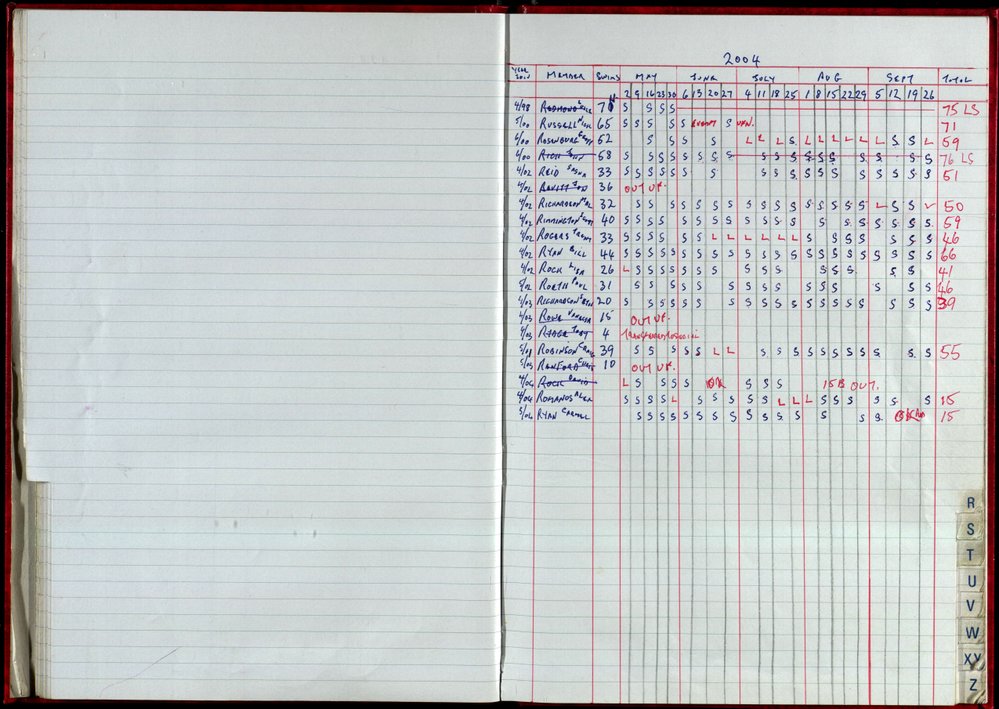 2004
YEAR JOIN MEMBER SWIMS MAY JUNE JULY AUG SEPT TOTAL
2 9 16 23 30 6 13 20 27 4 11 18 25 1 8 15 22 29 5 12 19 26
4/98 REDMOND S S S S 75 LS
5/00 RUSSELL NICK 65 S S S S S EXEMPT S 71
6/00 ROSENBURG 52 S S S S L L L S L L L L L L S S L 59
4/00 RICH JOHN 58 S S S S S S S S S S S S S S S S S S S 76 LS
4/02 REID 33 S S S S S S S S S S S S S S S S S S 51
4/02 36 OUT UF.
4/02 RICHARDSON MAL 32 S S S S S S S S S S S S S S S S S L S S L 50
4/02 RIMMINGTON 40 S S S S S S S S S S S S S S S S S S S 59
4/02 ROGERS TRENT 33 S S S S S S L L L L L L S S S S S S S 46
4/02 RYAN BILL 44 S S S S S S S S S S S S S S S S S S S S S S 66
4/02 ROCK LISA 26 L S S S S S S S S S S S S S S S 41
5/02 RORTH PAUL 31 S S S S S S S S S S S S S S S 46
4/03 RICHARDSON 20 S S S S S S S S S S S S S S S S S S S 39
4/03 ROWE VANESSA 15 OUT UF.
4/03 4
5/03 ROBINSON CRAIG 39 S S S S S L L S S S S S S S S S S 55
5/03 RANFORD CHRIS 10 OUT UF.
4/04 ROCK DAVID L S S S S S S S 15B OUT.
4/04 ROMANOS ALEX S S S S L S S S S S L L L S S S S S S 15
5/04 RYAN CARMEL S S S S S S S S S S S S S S S 15
R
S
T
U
V
W
XY
Z